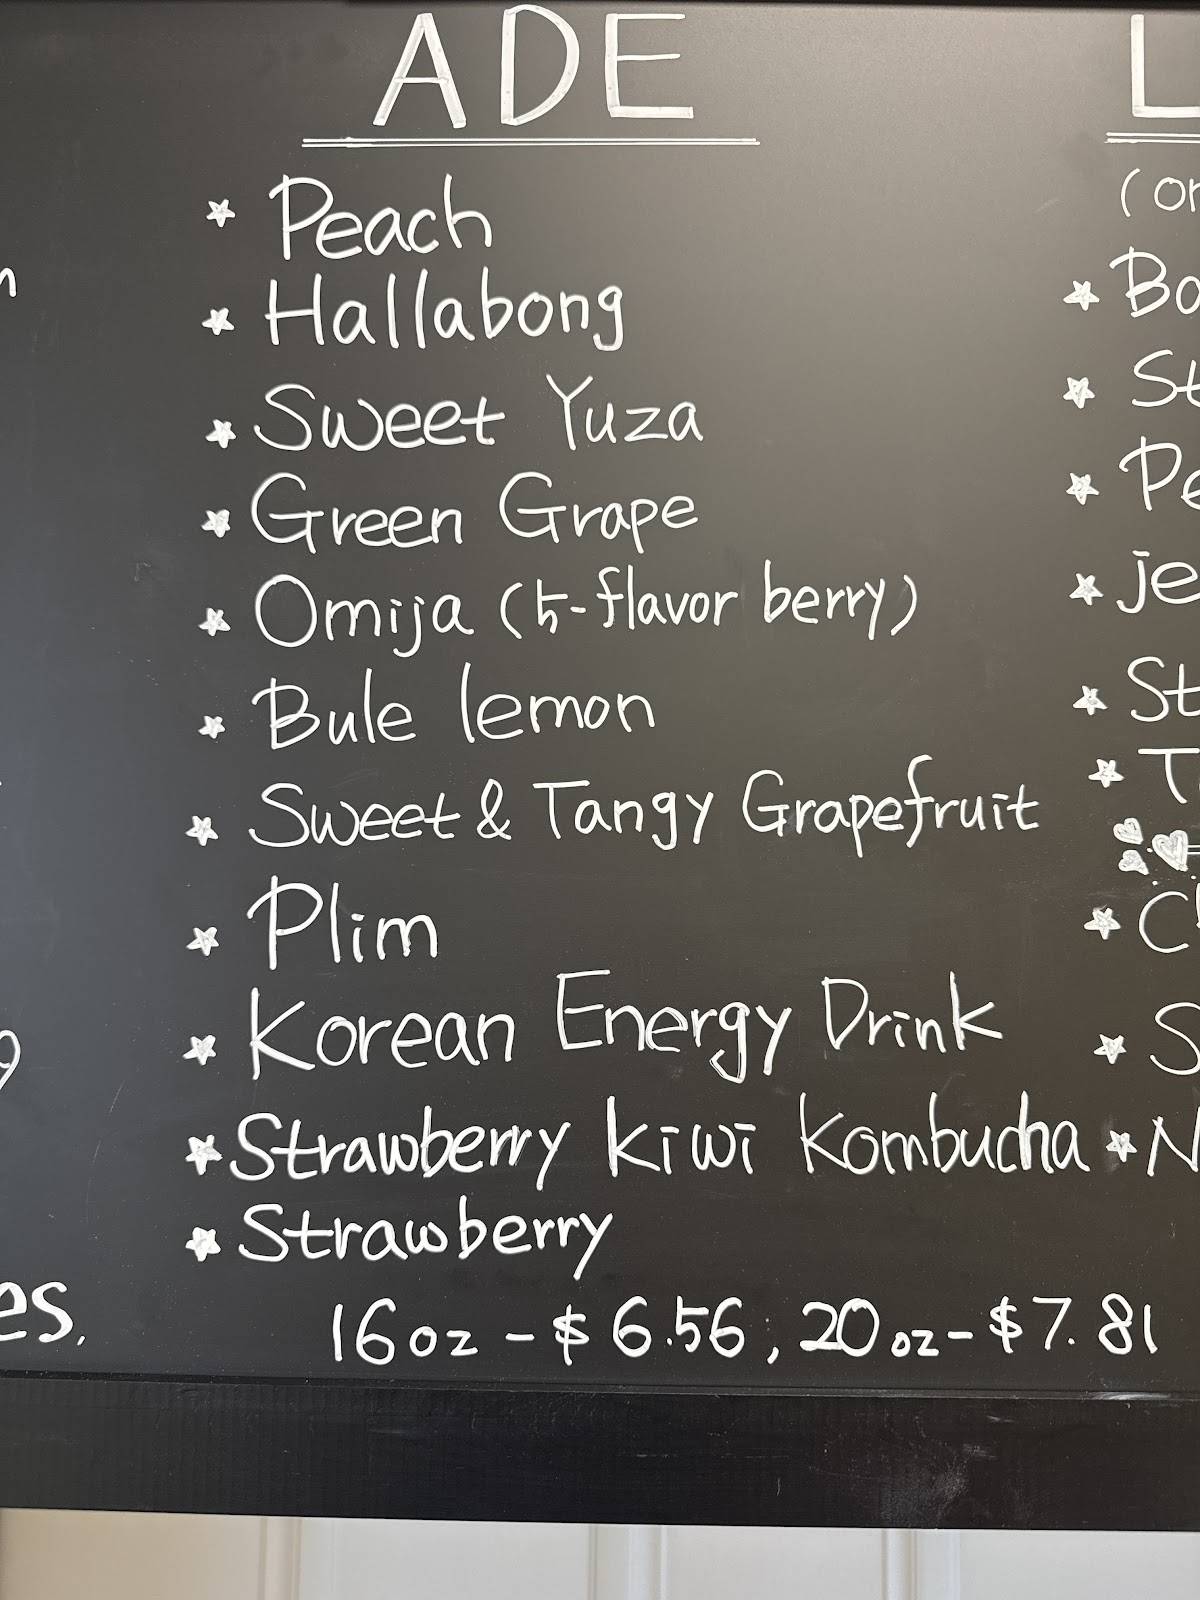 ADE
Peach
Hallabong
Sweet Yuza
Green Grape
Omija (5-flavor berry)
Bule lemon
Sweet & Tangy Grapefruit
Plim
Korean Energy Drink
Strawberry kiwi kombucha
Strawberry
16oz - $6.56, 20oz - $7.81
es.
L
(or
Ba
St
Pe
je
St
T
S
N